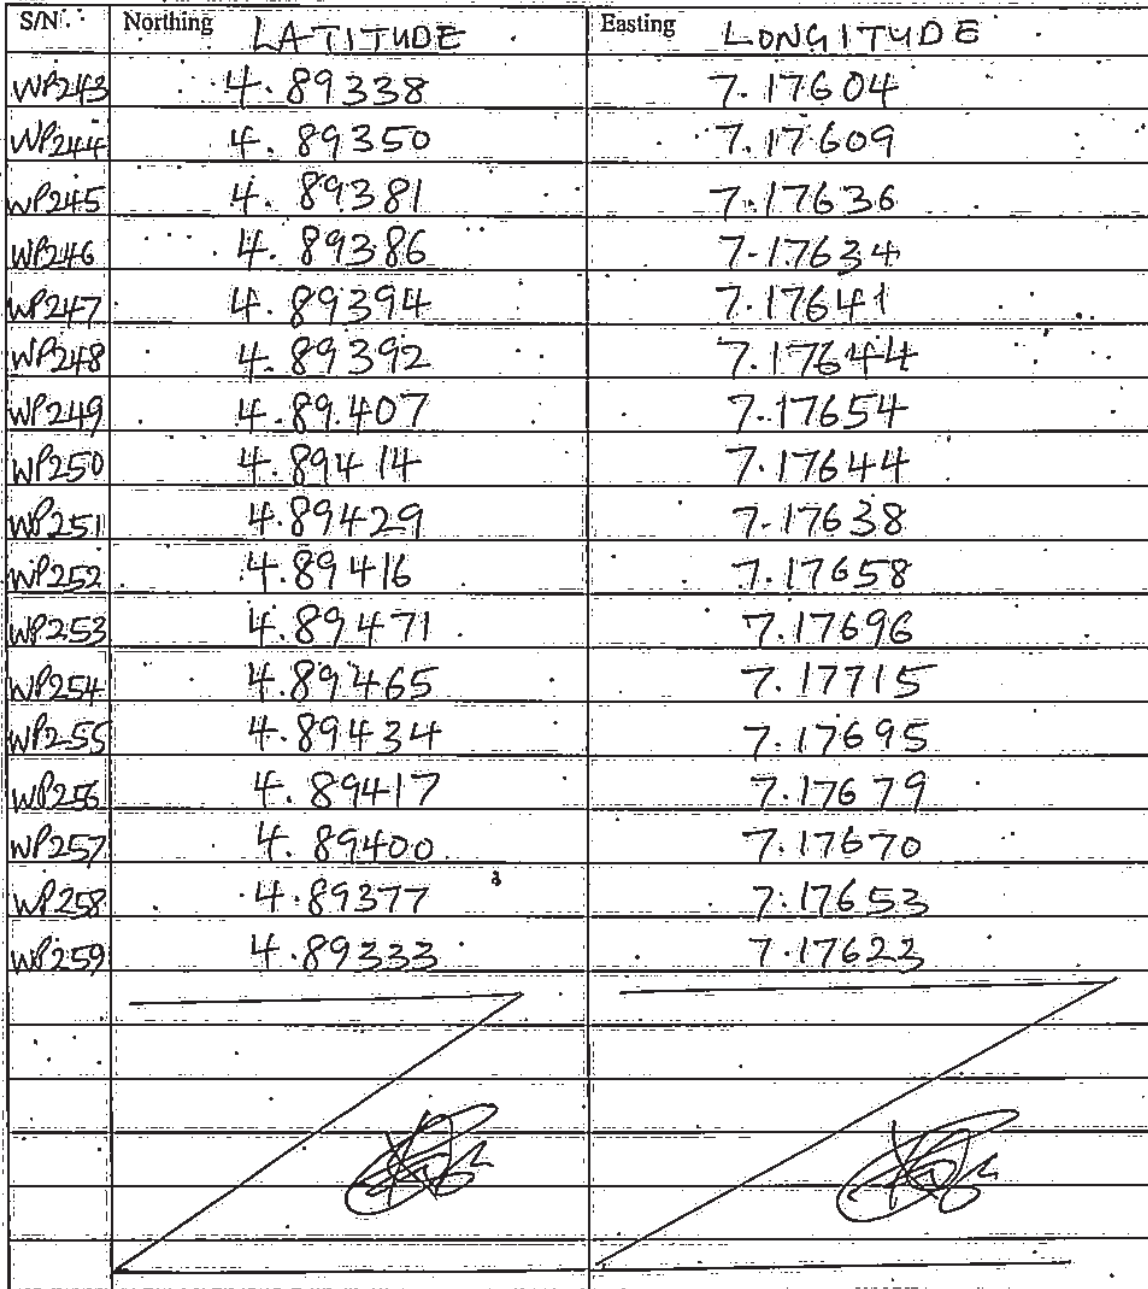 S/N Northing LATITUDE Easting LONGITUDE
WP243 4.89338 7.17604
WP244 4.89350 7.17609
WP245 4.89381 7.17636
WP246 4.89386 7.17634
WP247 4.89394 7.17641
WP248 4.89392 7.17644
WP249 4.89407 7.17654
WP250 4.89414 7.17644
WP251 4.89429 7.17638
WP252 4.89416 7.17658
WP253 4.89471 7.17696
WP254 4.89465 7.17715
WP255 4.89434 7.17695
WP256 4.89417 7.17679
WP257 4.89400 7.17670
WP258 4.89377 7.17653
WP259 4.89333 7.17623